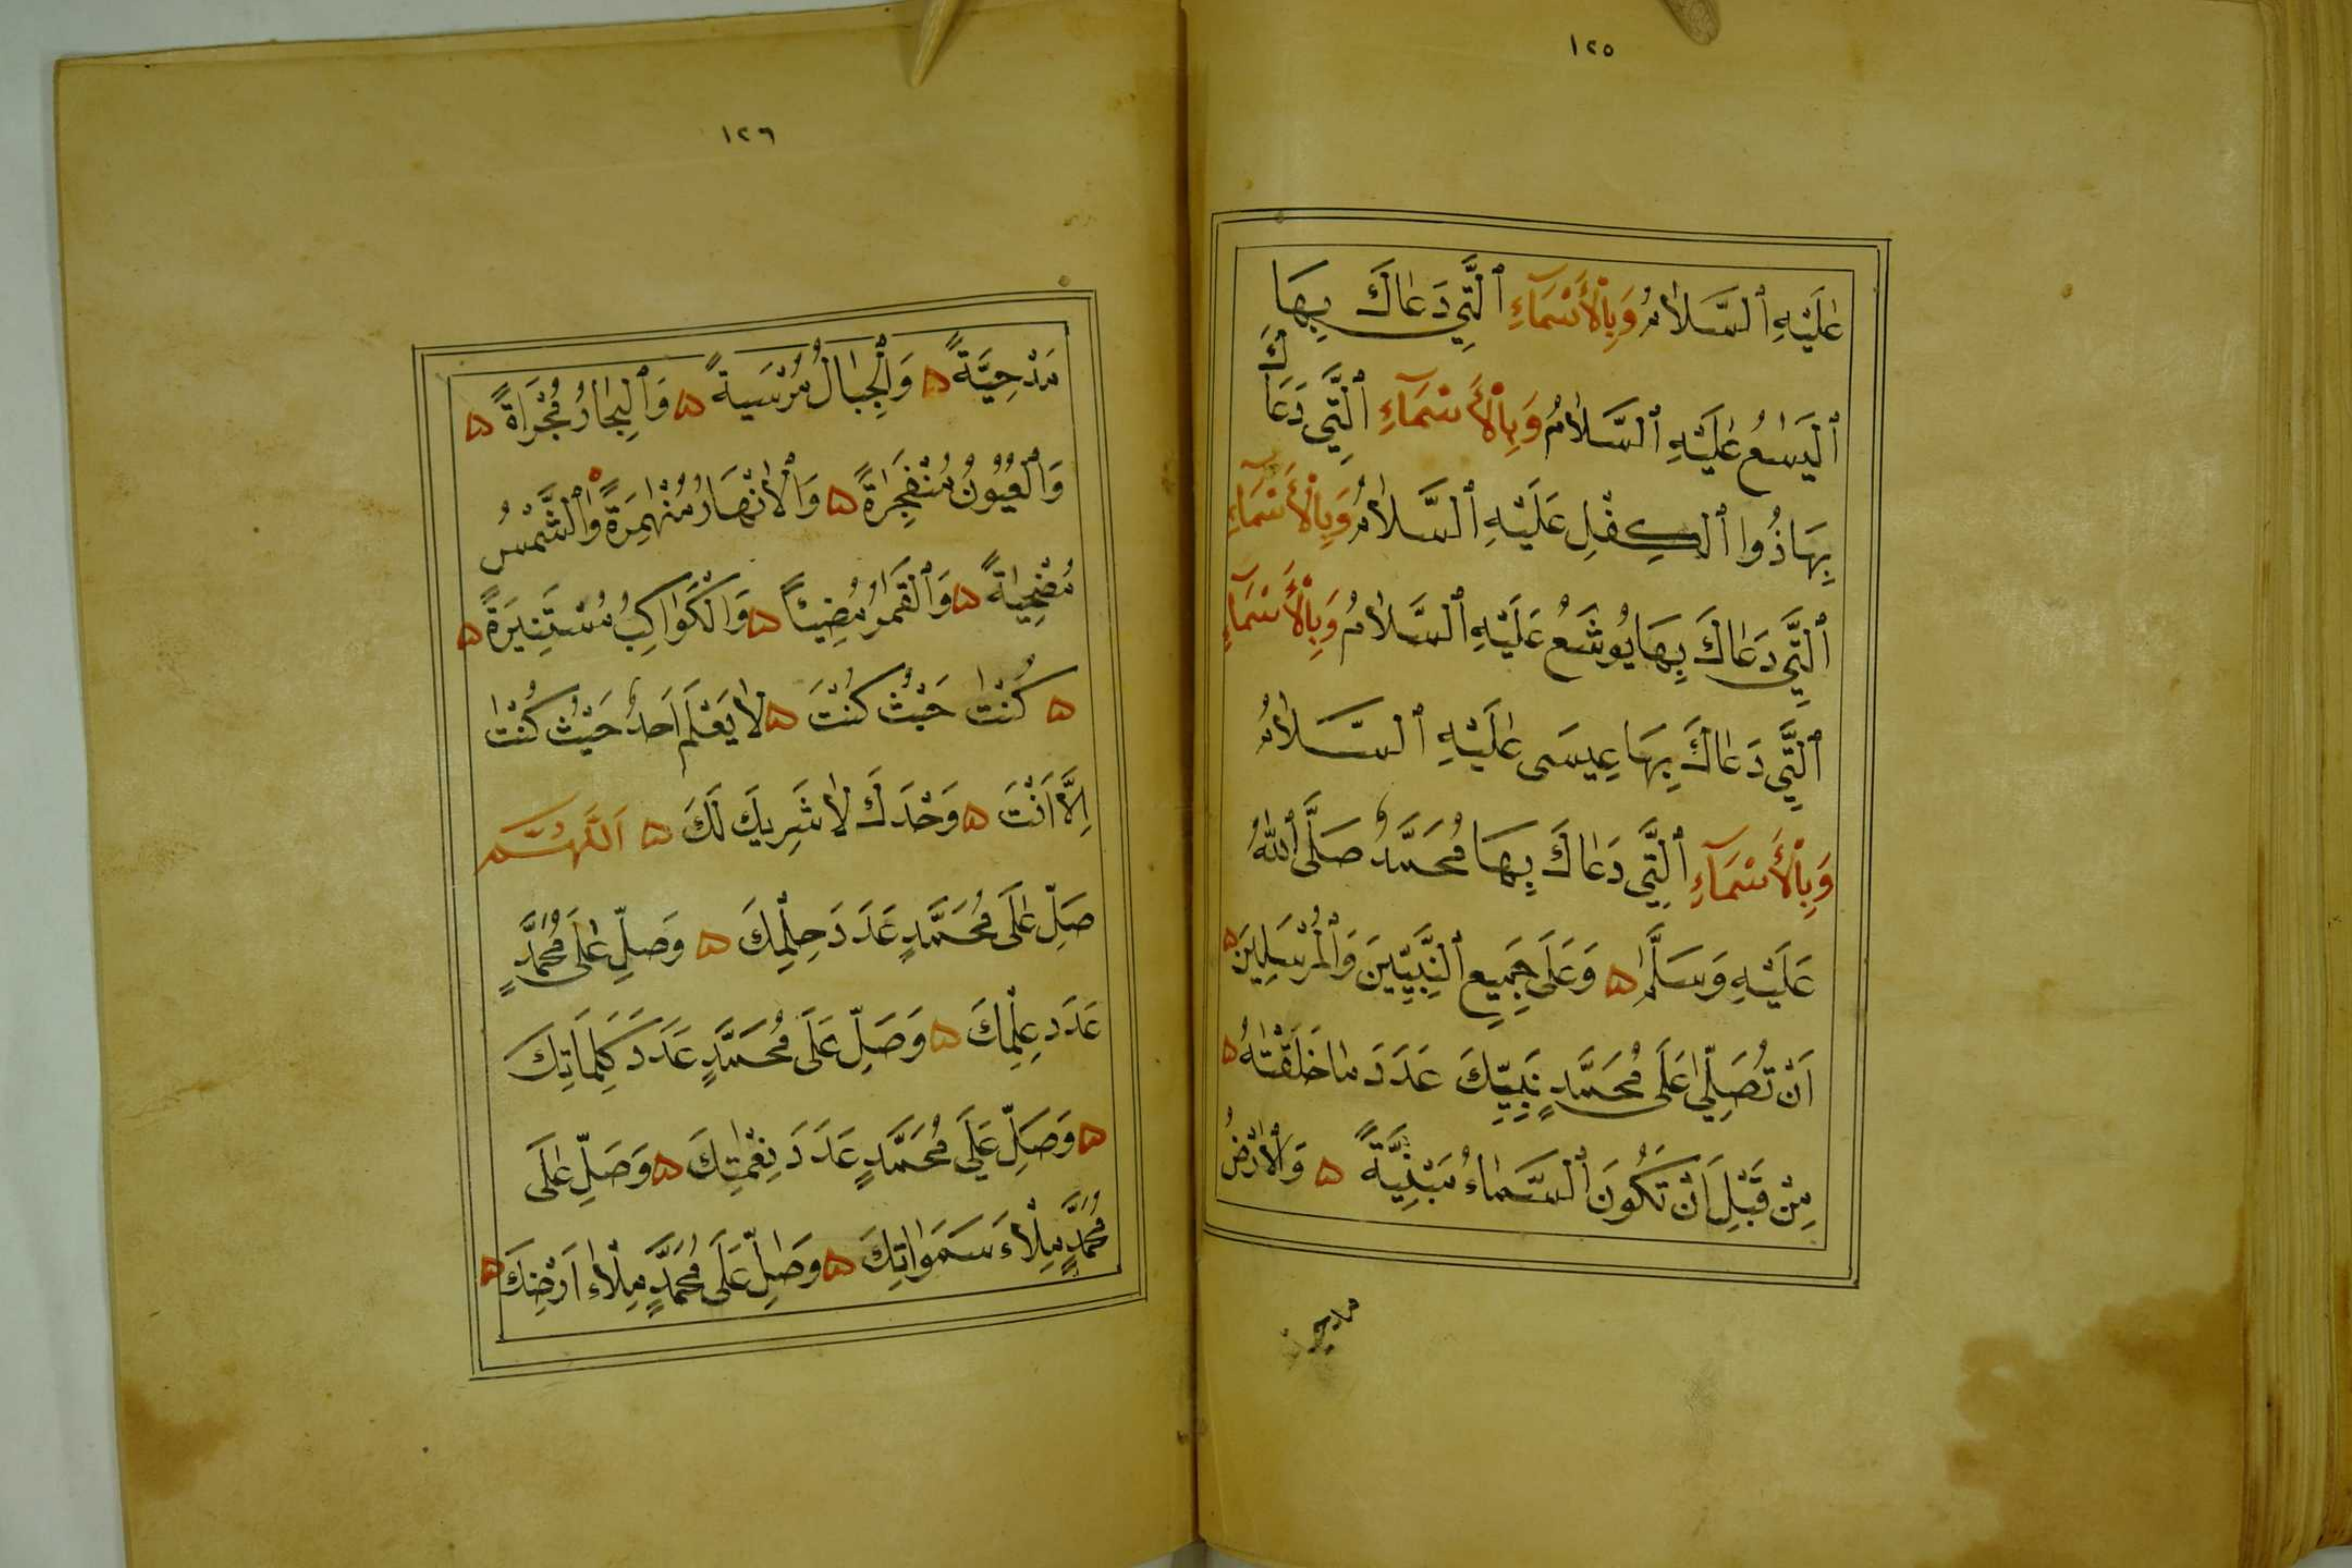 ١٢٥
عَلَيْهِ ٱلسَّلَامُ وَبِٱلْأَسْمَآءِ ٱلَّتِي دَعَاكَ بِهَا
ٱلْيَسَعُ عَلَيْهِ ٱلسَّلَامُ وَبِٱلْأَسْمَآءِ ٱلَّتِي دَعَاكَ
بِهَا ذُوا ٱلْكِفْلِ عَلَيْهِ ٱلسَّلَامُ وَبِٱلْأَسْمَآءِ
ٱلَّتِي دَعَاكَ بِهَا يُوشَعُ عَلَيْهِ ٱلسَّلَامُ وَبِٱلْأَسْمَآءِ
ٱلَّتِي دَعَاكَ بِهَا عِيسَى عَلَيْهِ ٱلسَّلَامُ
وَبِٱلْأَسْمَآءِ ٱلَّتِي دَعَاكَ بِهَا مُحَمَّدٌ صَلَّى ٱللهُ
عَلَيْهِ وَسَلَّمَ ۵ وَعَلَى جَمِيعِ ٱلنَّبِيِّينَ وَٱلْمُرْسَلِينَ ۵
اَنْ تُصَلِّيَ عَلَى مُحَمَّدٍ نَبِيِّكَ عَدَدَ مَا خَلَقْتَهُ ۵
مِنْ قَبْلِ اَنْ تَكُونَ ٱلسَّمَاءُ مَبْنِيَّةً ۵ وَٱلْاَرْضُ
١٢٦
مَدْحِيَّةً ۵ وَٱلْجِبَالُ مُرْسَيةً ۵ وَٱلْبِحَارُ مُجْرَاةً ۵
وَٱلْعُيُونُ مُنْفَجِرَةً ۵ وَٱلْاَنْهَارُ مُنْهَمِرَةً وَٱلشَّمْسُ
مُضْحِيَةً ۵ وَٱلْقَمَرُ مُضِيْئًا ۵ وَٱلْكَوَاكِبُ مُسْتَنِيرَةً ۵
۵ كُنْتَ حَيْثُ كُنْتَ ۵ لَا يَعْلَمُ اَحَدٌ حَيْثُ كُنْتَ
اِلَّا اَنْتَ ۵ وَحْدَكَ لَا شَرِيكَ لَكَ ۵ اَللّٰهُمَّ
صَلِّ عَلَى مُحَمَّدٍ عَدَدَ حِلْمِكَ ۵ وَصَلِّ عَلَى مُحَمَّدٍ
عَدَدِ عِلْمِكَ ۵ وَصَلِّ عَلَى مُحَمَّدٍ عَدَدَ كَلِمَاتِكَ
۵ وَصَلِّ عَلَي مُحَمَّدٍ عَدَدَ نِعْمَتِكَ ۵ وَصَلِّ عَلَى
مُحَمَّدٍ مِلْاءَ سَمَوَاتِكَ ۵ وَصَلِّ عَلَى مُحَمَّدٍ مِلْاءَ اَرْضِكَ ۵